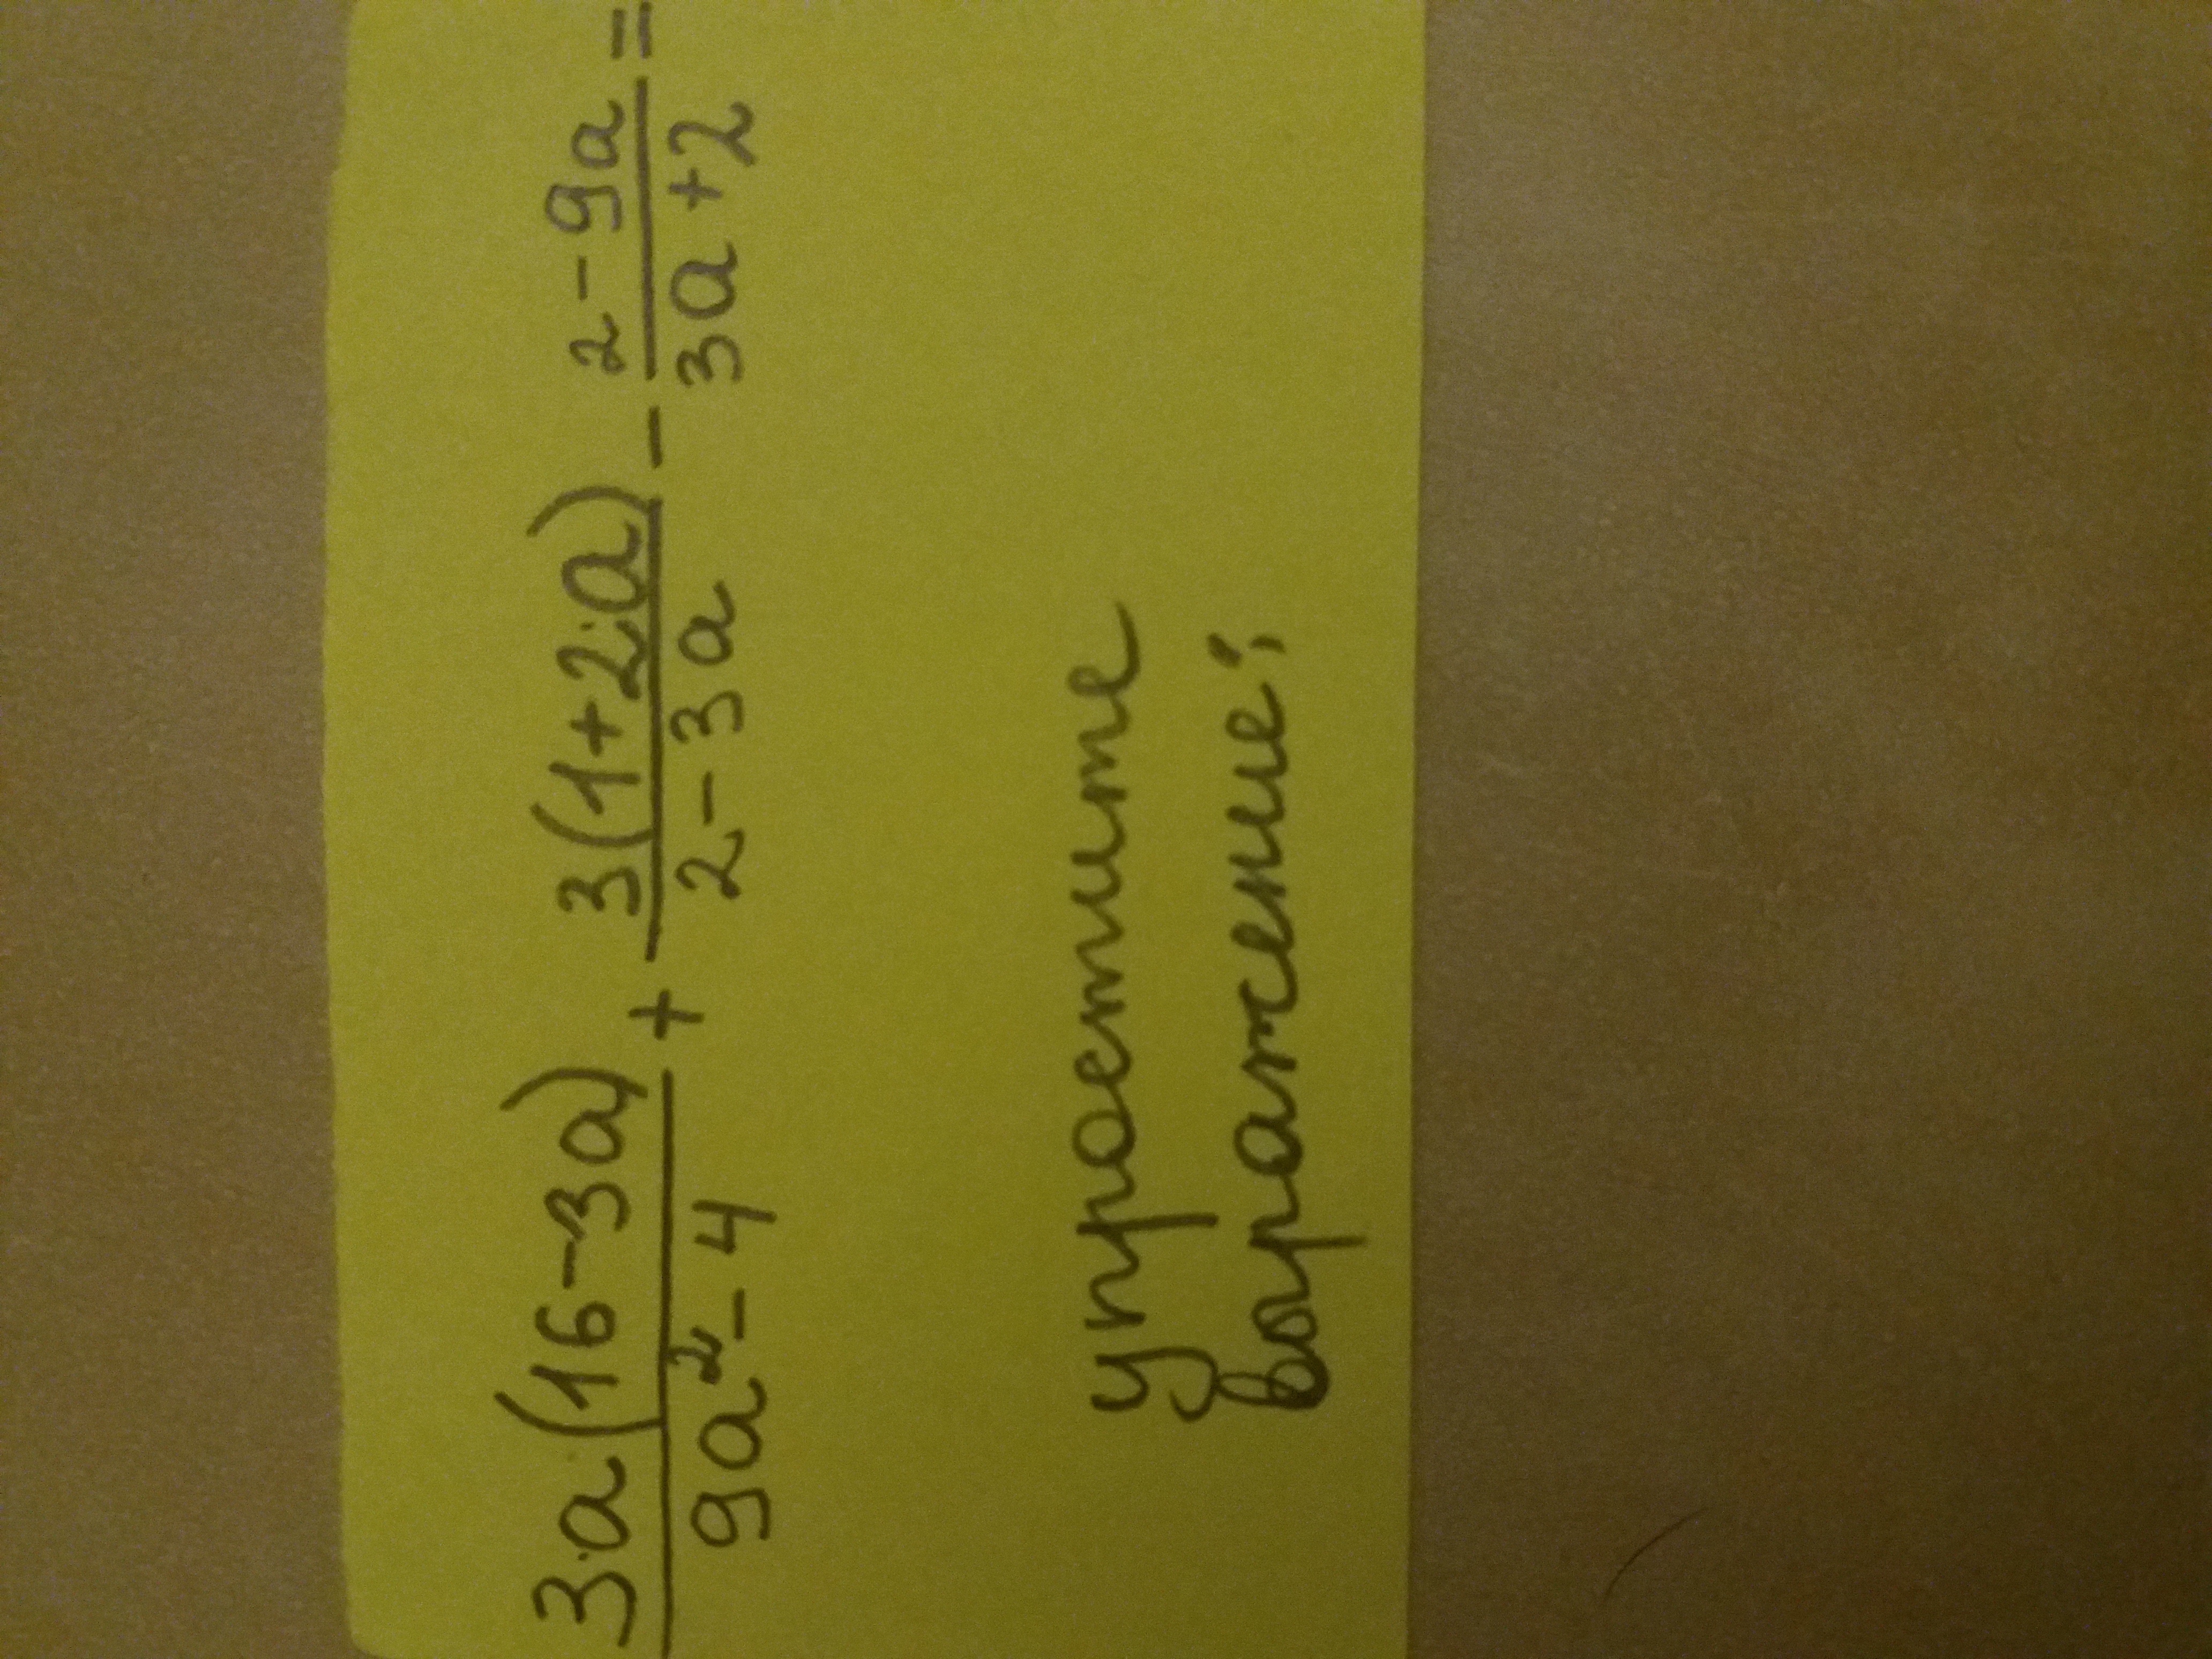 3·a·(16-3a)/(9a²-4) + 3(1+2·a)/(2-3a) - (2-9a)/(3a+2) =
упростите
выражение: